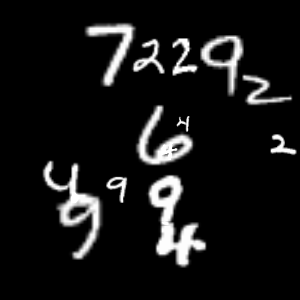 7229
2
4
6
4
2
4 9 9
9
4